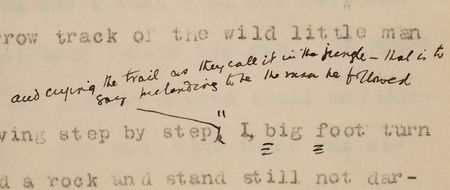 row track of the wild little man
and crying the trail as they call it in the jungle – that is to
say pretending to be the man he followed
ving step by step," I, big foot turn
d a rock and stand still not dar-